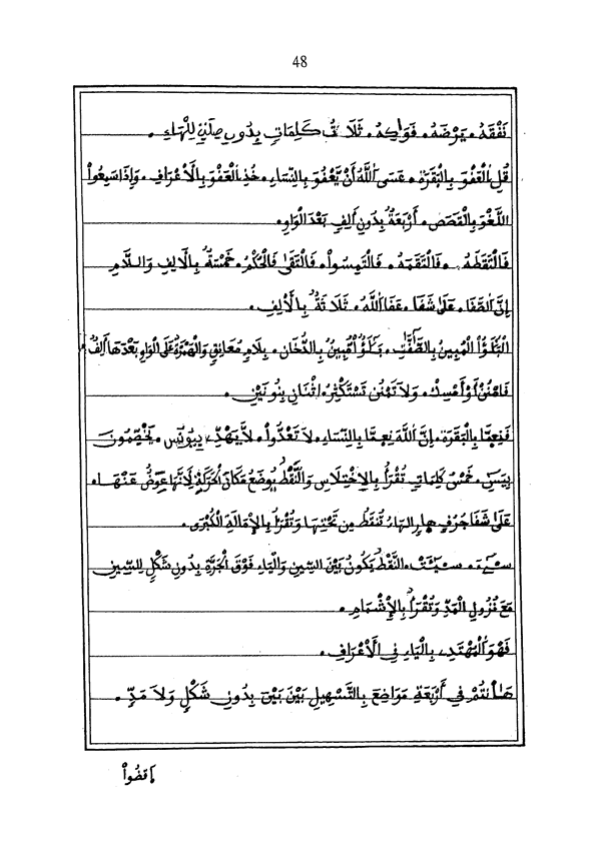 48
نَفْقَهُ. يَرْضَهُ. فَوَاكِهُ. ثَلَاثُ كَلِمَاتٍ بِدُونِ صِلَةٍ لِلْهَاءِ.
قُلِ الْعَفْوَ بِالْبَقَرَةِ. عَسَى اَللَّهُ أَنْ يَّعْفُوَ بِالنِّسَاءِ. خُذِ الْعَفْوَ بِالْأَعْرَافِ. وَإِذَا سَمِعُواْ
اللَّغْوَ بِالْقَصَصِ. أَرْبَعَةٌ بِدُونِ أَلِفٍ بَعْدَ الْوَاوِ.
فَالْتَقَطَهُ. فَالْتَقَمَهُ. فَالْتَمِسُواْ. فَالْتَقَى فَالْحُكْمُ. خَمْسَةٌ بِالْأَلِفِ وَاللَّامِ
إِنَّ اَلصَّفَا. عَلَىٰ شَفَا. عَفَا اَللَّهُ. ثَلَاثَةٌ بِالْأَلِفِ.
الْبَلَٰؤُاْ الْمُبِينُ بِالصَّٰٓفَّٰتِ. بَلَٰؤٌاْ مُّبِينٌ بِالدُّخَانِ. بِلَامِ مُعَانِقٍ وَالْهَمْزَةُ عَلَى الْوَاوِ بَعْدَهَا أَلِفٌ
فَامْنُنْ أَوْ أَمْسِكْ. وَلَا تَمْنُن تَسْتَكْثِرُ. اثْنَانِ بِنُونَيْنِ.
فَنِعِمَّا بِالْبَقَرَةِ. إِنَّ اَللَّهَ نِعِمَّا بِالنِّسَاءِ. لَا تَعْدُّواْ. لَا يَهْدِّي بِيُونُسَ. يَخْصِّمُونَ
بِيَسٓ. خَمْسُ كَلِمَاتٍ تُقْرَأُ بِالِاخْتِلَاسِ وَالنَّقْطُ يُوضَعُ مَكَانَ الْحَرَكَةِ لِأَنَّهَا عِوَضٌ عَنْهَا.
عَلَىٰ شَفَا جُرُفٍ هِارٍ الْهَاءُ تُنقَطُ مِن تَحْتِهَا وَتُقْرَأُ بِالْإِمَالَةِ الْكُبْرَى.
سِےٓءَ. سِيٓـَٔتْ. النَّقْطُ يَكُونُ بَيْنَ السِّينِ وَالْيَاءِ فَوْقَ الْجَرَّةِ بِدُونِ شَكْلٍ لِلسِّينِ
مَعَ نُزُولِ الْمَدِّ وَتُقْرَأُ بِالْإِشْمَامِ.
فَهْوَ اَلْمُهْتَدِے بِالْيَاءِ فِي الْأَعْرَافِ.
هَٰٓانتُمْ فِي أَرْبَعَةِ مَوَاضِعَ بِالتَّسْهِيلِ بَيْنَ بَيْنَ بِدُونِ شَكْلٍ وَلَا مَدٍّ.